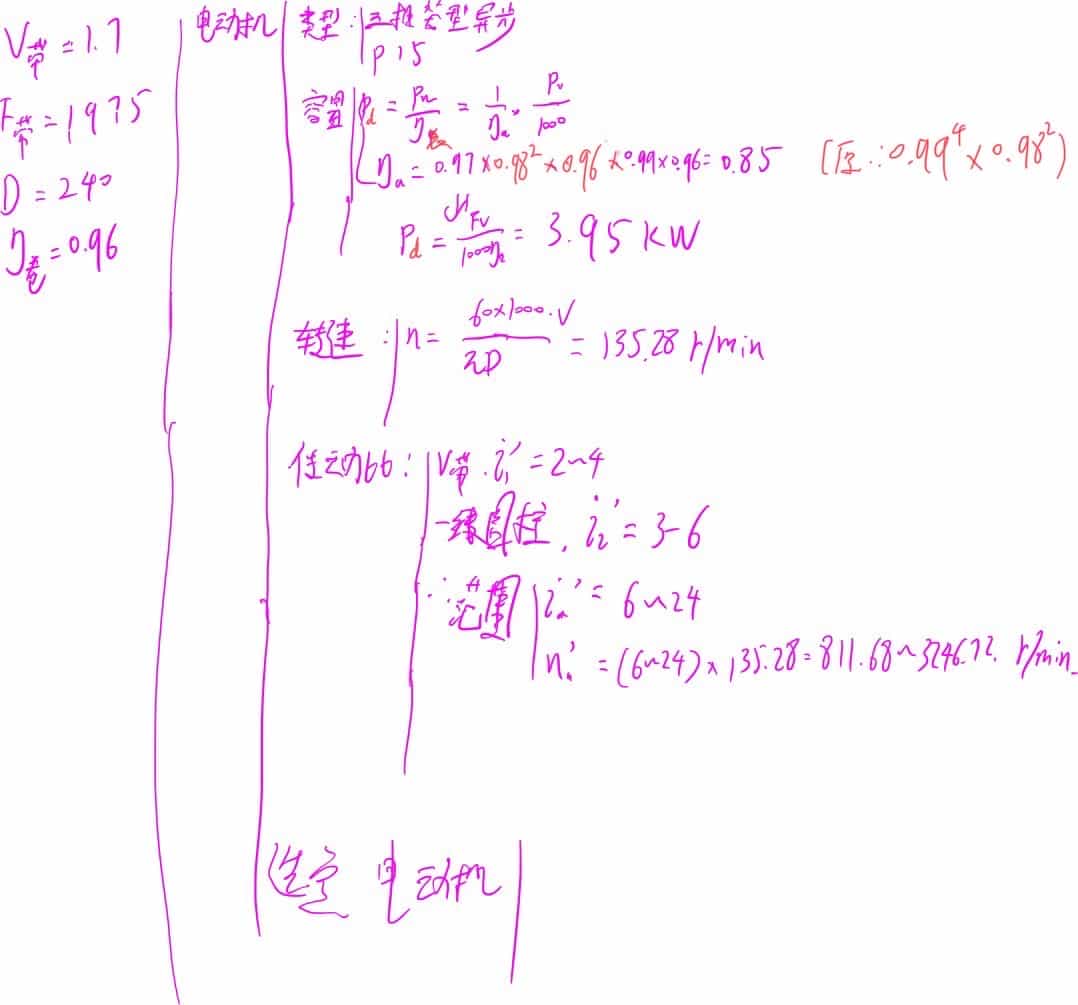 V带 = 1.7
F带 = 1975
D = 240
η卷 = 0.96
电动机
类型: 三相 型异步
P15
容量 Pd = Pw/η总 = 1/ηa · Fv/1000
ηa = 0.97×0.98²×0.96×0.99×0.96 = 0.85 (原: 0.99⁴×0.98²)
Pd = Fv/1000ηa = 3.95 KW
转速: n = 60×1000·V/πD = 135.28 r/min
传动比: V带. i₁' = 2~4
一级圆柱. i₂' = 3-6
∴范围 ia' = 6~24
na' = (6~24)×135.28 = 811.68~3246.72 r/min
选定 电动机